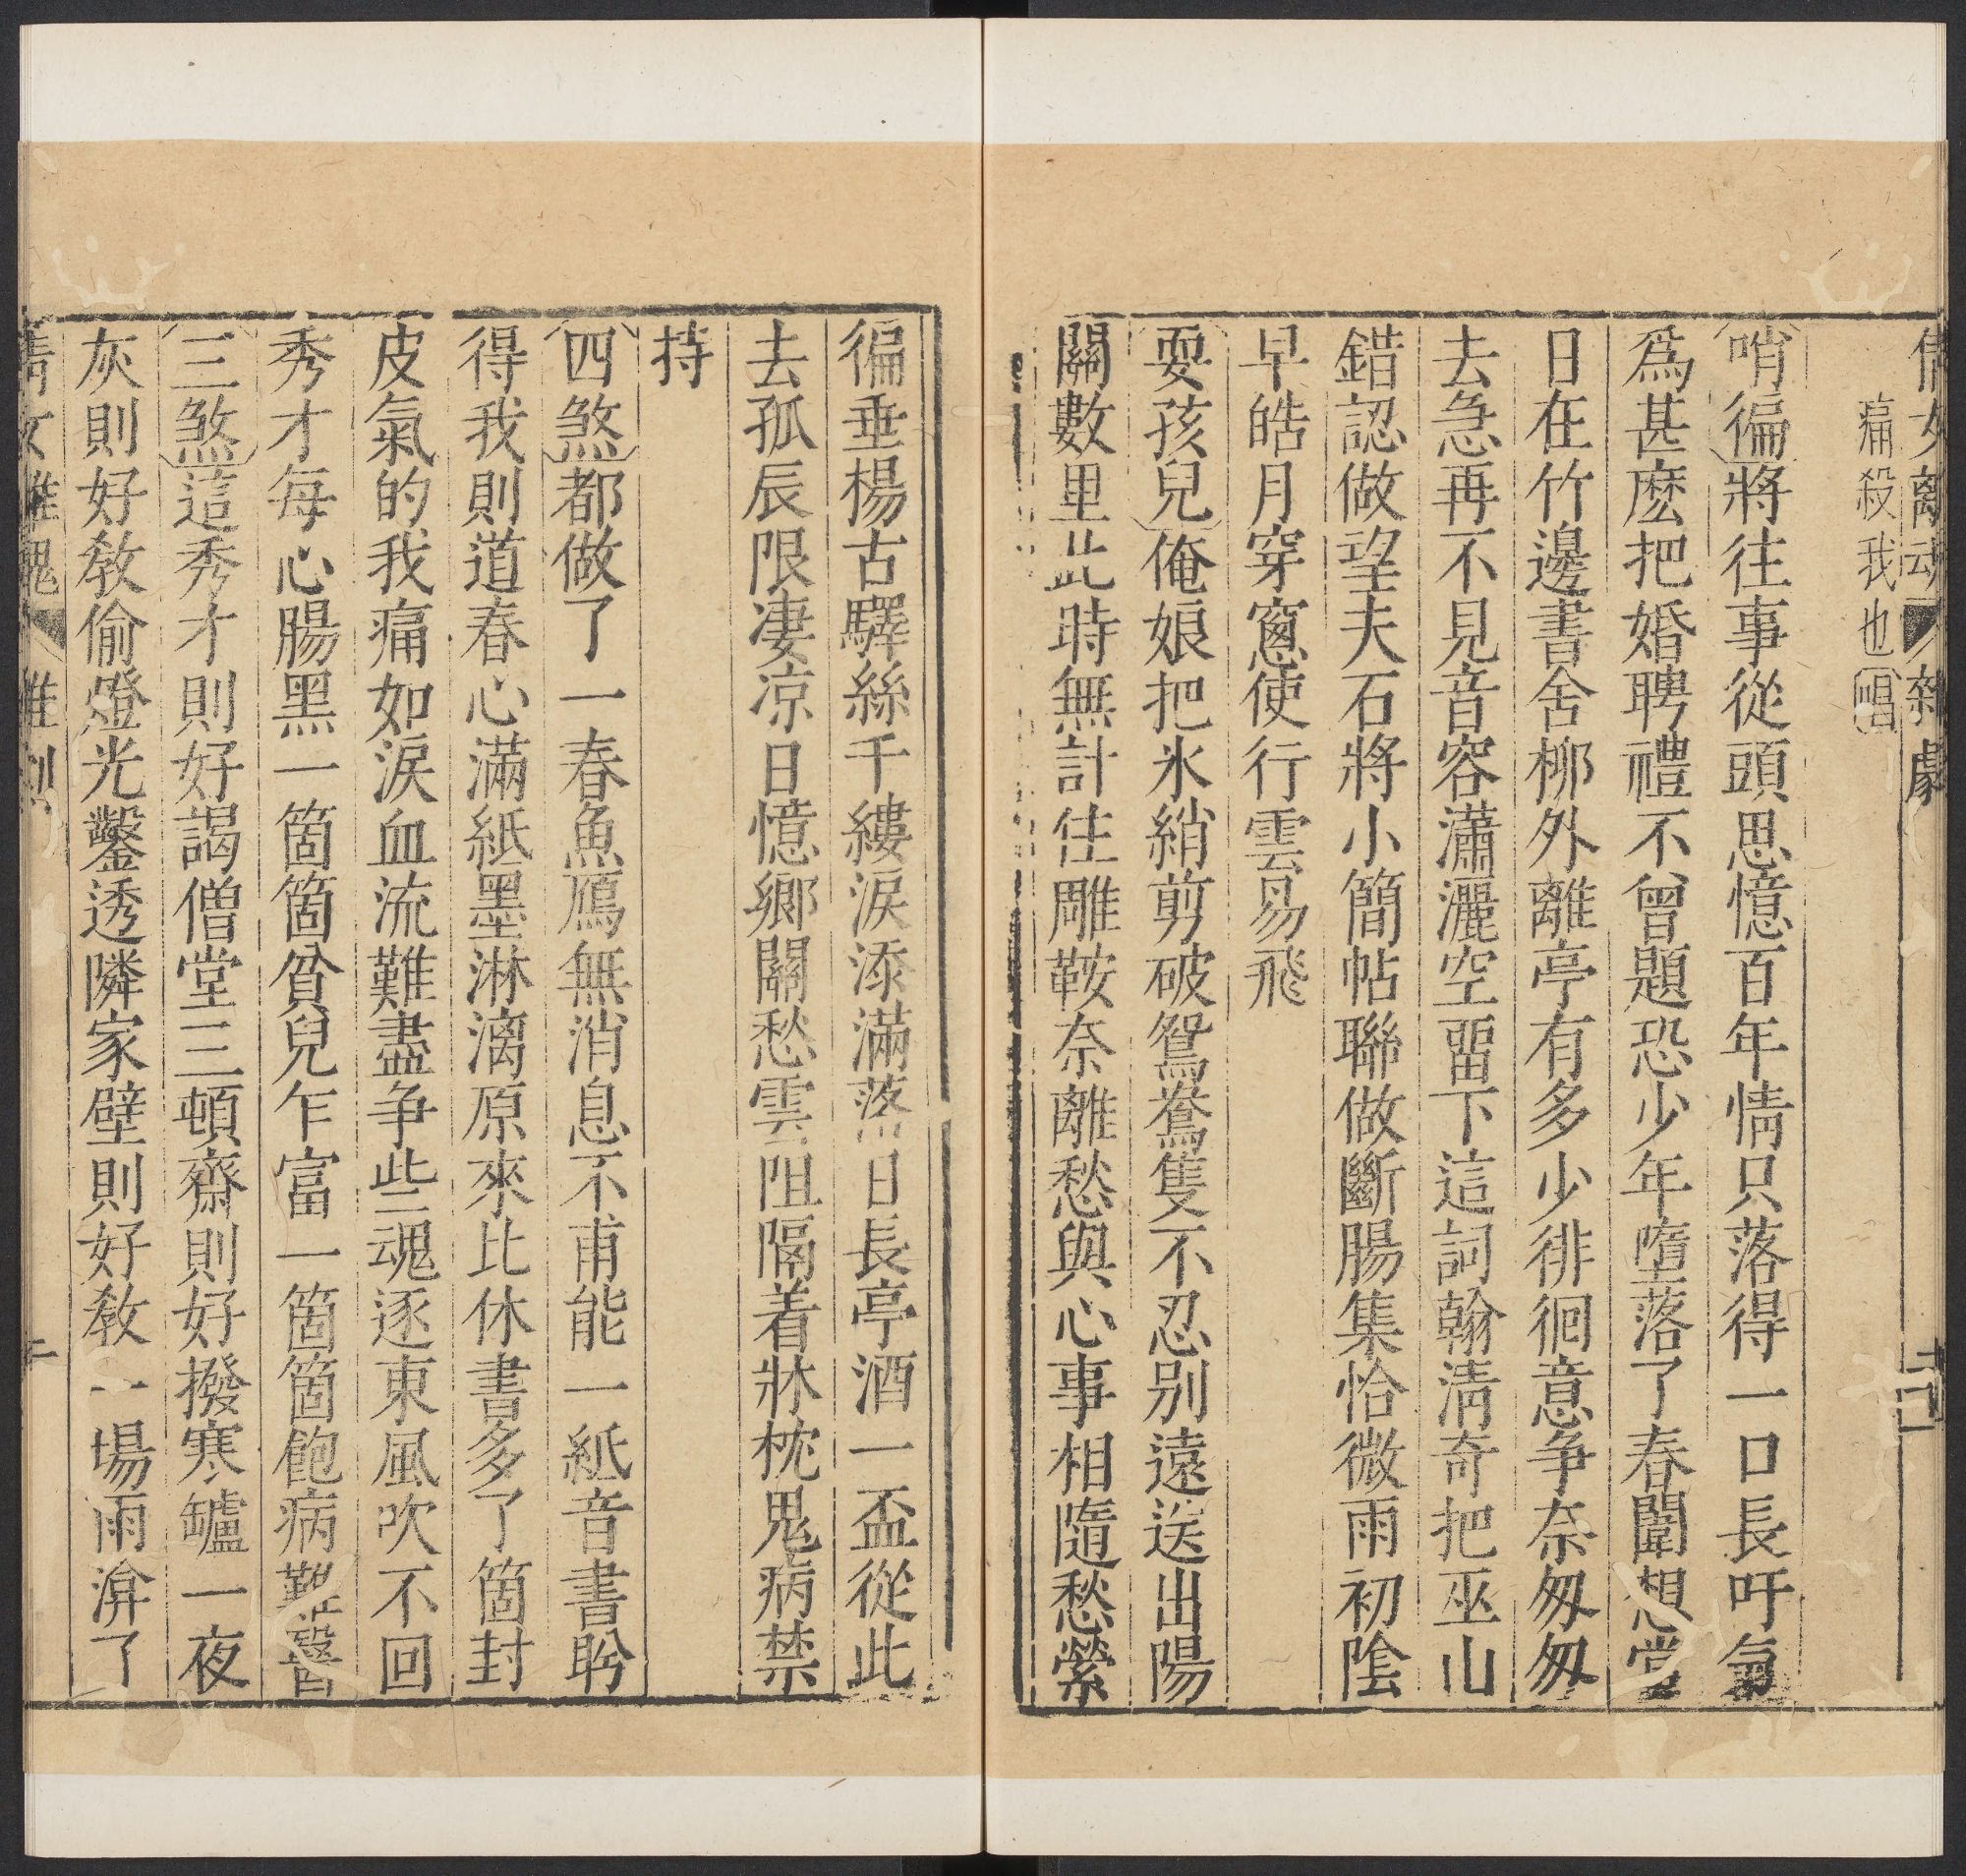 倩女離魂 雜劇
痛殺我也唱
哨徧將往事從頭思憶百年情只落得一口長吁氣
爲甚麽把婚聘禮不曾題恐少年墮落了春闈想當
日在竹邊書舍柳外離亭有多少徘徊意争奈匆匆
去急再不見音容瀟灑空畱下這詞翰淸奇把巫山
錯認做望夫石將小簡帖聯做斷腸集恰微雨初陰
早皓月穿窻使行雲易飛
耍孩兒俺娘把氷綃剪破鴛鴦隻不忍别遠送出陽
關數里此時無計住雕鞍奈離愁與心事相隨愁縈
徧垂楊古驛絲千縷淚添滿落日長亭酒一盃從此
去孤辰限凄凉日憶鄉關愁雲阻隔着牀枕鬼病禁
持
四煞都做了一春魚鴈無消息不甫能一紙音書盻
得我則道春心滿紙墨淋漓原來比休書多了箇封
皮氣的我痛如淚血流難盡争些魂逐東風吹不回
秀才每心腸黑一箇箇貧兒乍富一箇箇飽病難醫
三煞這秀才則好謁僧堂三頓齋則好撥寒罏一夜
灰則好教偷燈光鑿透隣家壁則好教一場雨渰了
倩女離魂 雜劇 二